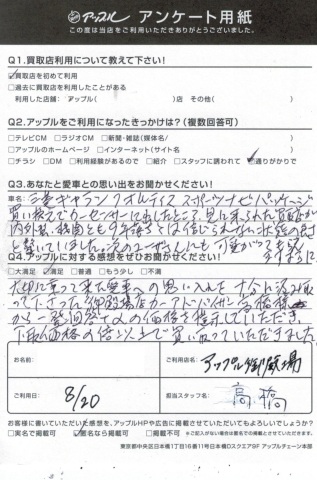 アップル アンケート用紙
この度は当店をご利用いただきありがとうございました。
Q1.買取店利用について教えて下さい!
☑買取店を初めて利用
□過去に買取店を利用したことがある
利用した店舗: アップル( )店 その他( )
Q2.アップルをご利用になったきっかけは?(複数回答可)
□テレビCM □ラジオCM □新聞・雑誌(媒体名/ )
□アップルのホームページ □インターネット(サイト名 )
□チラシ □DM □利用経験があるので □紹介 □スタッフに誘われて ☑通りがかりで
Q3.あなたと愛車との思い出をお聞かせください!
車名: 三菱ギャランフォルティス スポーツナビパッケージ
買い換えでカーセンサーに
内外装、機関とも
と驚いていました。次のユーザーさんにも可愛がって
Q4.アップルに対する感想をぜひお聞かせください!
□大満足 ☑満足 □普通 □もう少し □不満
大切に乗って来た愛車への思い入れを十分に汲み取
って下さった御殿場店のアドバイザー高橋様
から一番回答の価格を提示していただき、
下取価格の倍以上で買い取っていただきました
お名前:
ご利用店名: アップル御殿場
ご利用日: 8/20
担当スタッフ名: 高橋
お客様に書いていただいた感想を、アップルHPや広告に掲載させていただいてもよろしいでしょうか?
□実名で掲載可 ☑匿名なら掲載可 □掲載不可 ※ご記入がない場合は匿名での掲載とさせていただきます。
東京都中央区日本橋1丁目16番11号日本橋DスクエアGF アップルチェーン本部